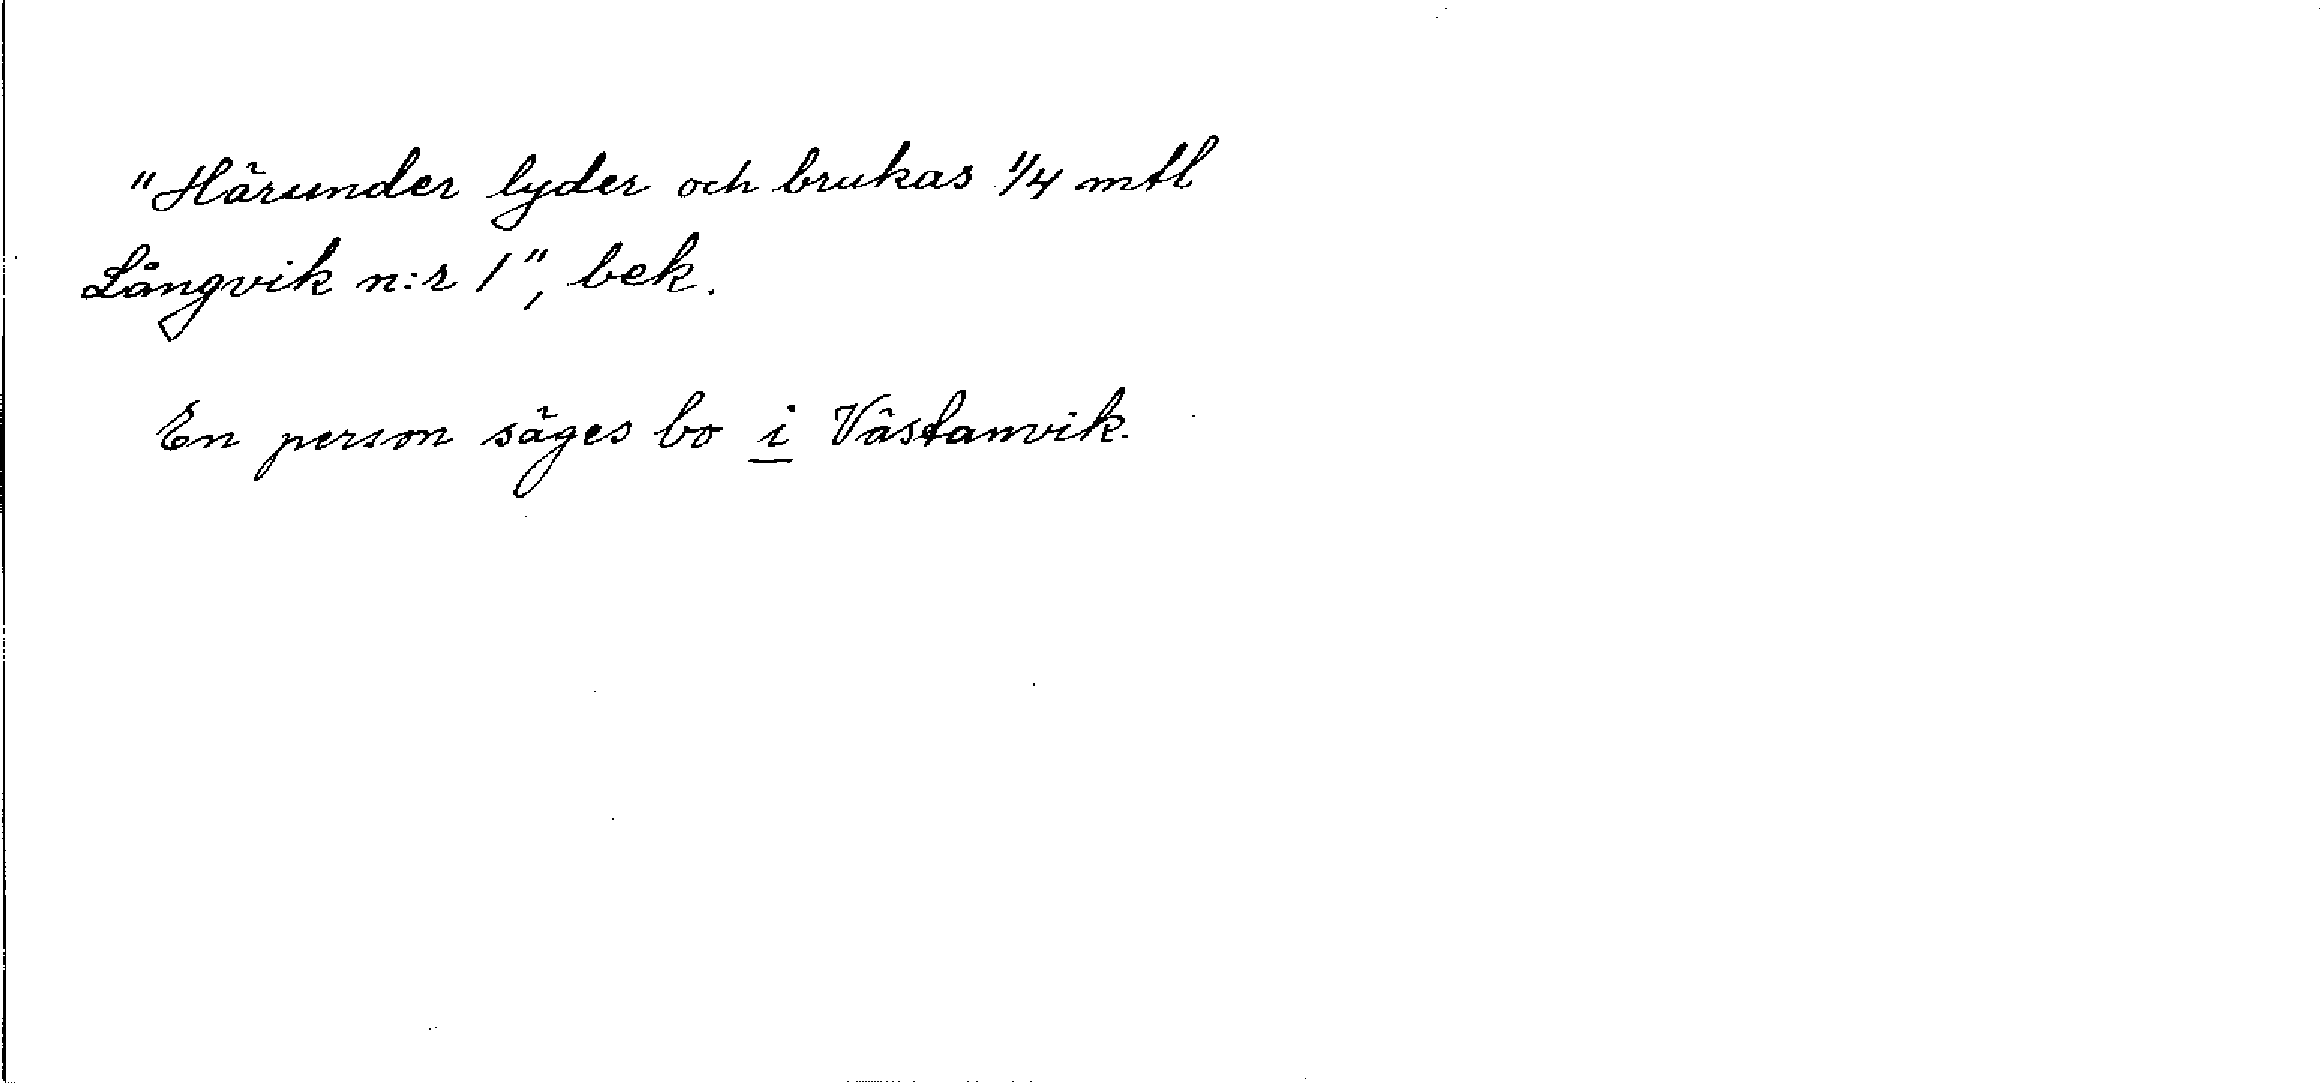 "Härunder lyder och brukas 1/4 mtl
Långvik n:r 1", bek.
En person säges bo i Västanvik.